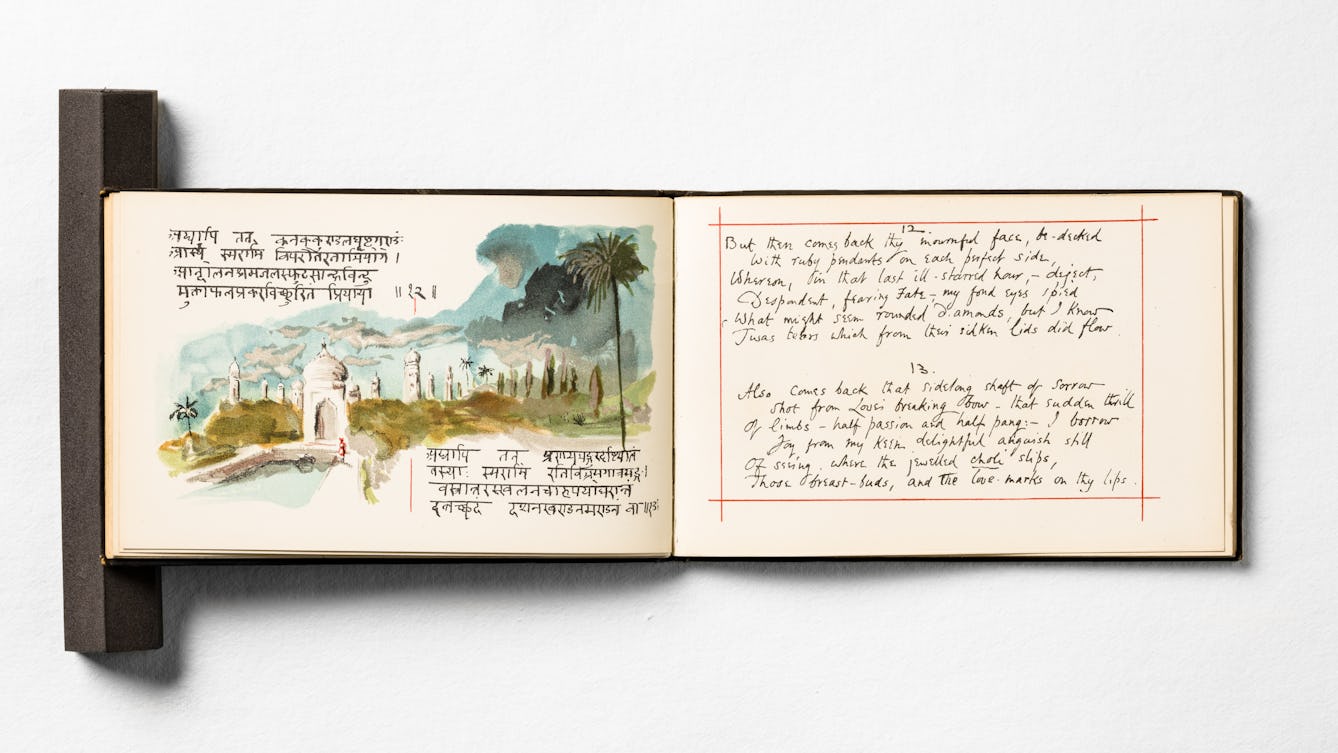 अद्यापि तत् कनककुण्डलघृष्टगण्डं
आस्यं स्मरामि विपरीतरताभियोगे ।
आन्दोलनश्रमजलस्फुटसान्द्रबिन्दु
मुक्ताफलप्रकरविच्छुरितं प्रियाया ॥ १२ ॥
अद्यापि तत्
तस्याः स्मरामि रतिविभ्रमगात्रभङ्गं ।
वस्त्रान्तरस्खलनचारुपयोधरान्तं
दन्तच्छदं दशनखण्डनमण्डनं वा ॥१३॥
12.
But then comes back thy mournful face, be-decked
With ruby pendants on each perfect side,
Whereon, (in that last ill-starred hour, – deject,
Despondent, fearing Fate – my fond eyes spied
What might seem rounded diamonds, but I know
'Twas tears which from their silken lids did flow.
13.
Also comes back that sidelong shaft of sorrow
Shot from Love's breaking bow – that sudden thrill
Of limbs – half passion and half pang: – I borrow
Joy from my keen delightful anguish still
Of seeing, where the jewelled choli slips,
Those breast-buds, and the love-marks on thy lips.